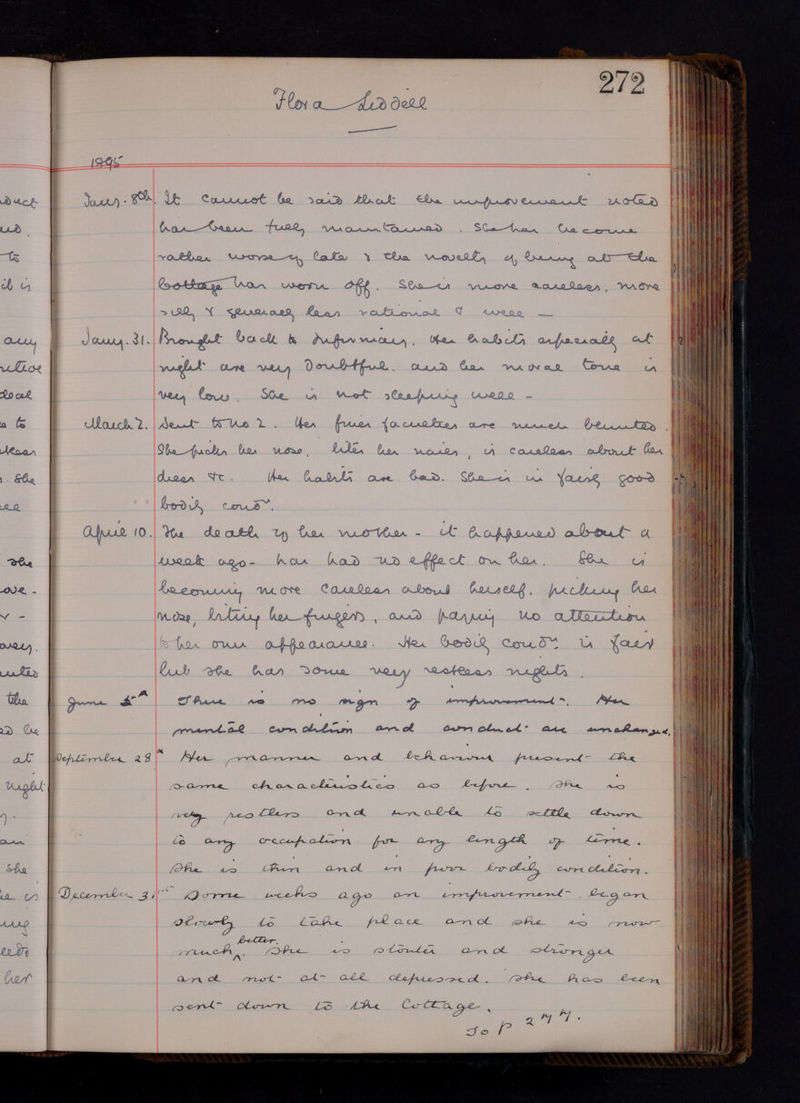 272
Flora Liddell
1895
Jany. 8th. It cannot be said that the improvement noted
has been fully maintained. She has become
rather worse of late & the novelty of being at the
Cottage has worn off. She is more careless, more
silly & generally less rational & well —
Jany. 31. Brought back to Infirmary. Her habits especially at
night are very doubtful. and her moral tone is
very low. She is not sleeping well -
March 2. Sent to No 2. Her finer faculties are much blunted.
She picks her nose, bites her nails, is careless about her
dress &c. Her habits are bad. She is in fairly good
bodily condn.
April 10. The death of her mother - it happened about a
week ago - has had no effect on her. She is
becoming more careless about herself. picking her
nose, biting her fingers, and paying no attention
to her own appearance. Her bodily condn is fair
but she has some very restless nights.
June 5th There is no sign of improvement. Her
mental condition and conduct are unchanged.
September 28th Her manner and behaviour present the
same characteristics as before. She is
very restless and unable to settle down
to any occupation for any length of time.
She is thin and in poor bodily condition.
December 31st Some weeks ago an improvement began
slowly to take place and she is now
much better. She is stouter and stronger
and not at all depressed. She has been
sent down to the Cottage.
To p 277.
duct
to
it is
any
a to
. She
she
the
at
night
She
her